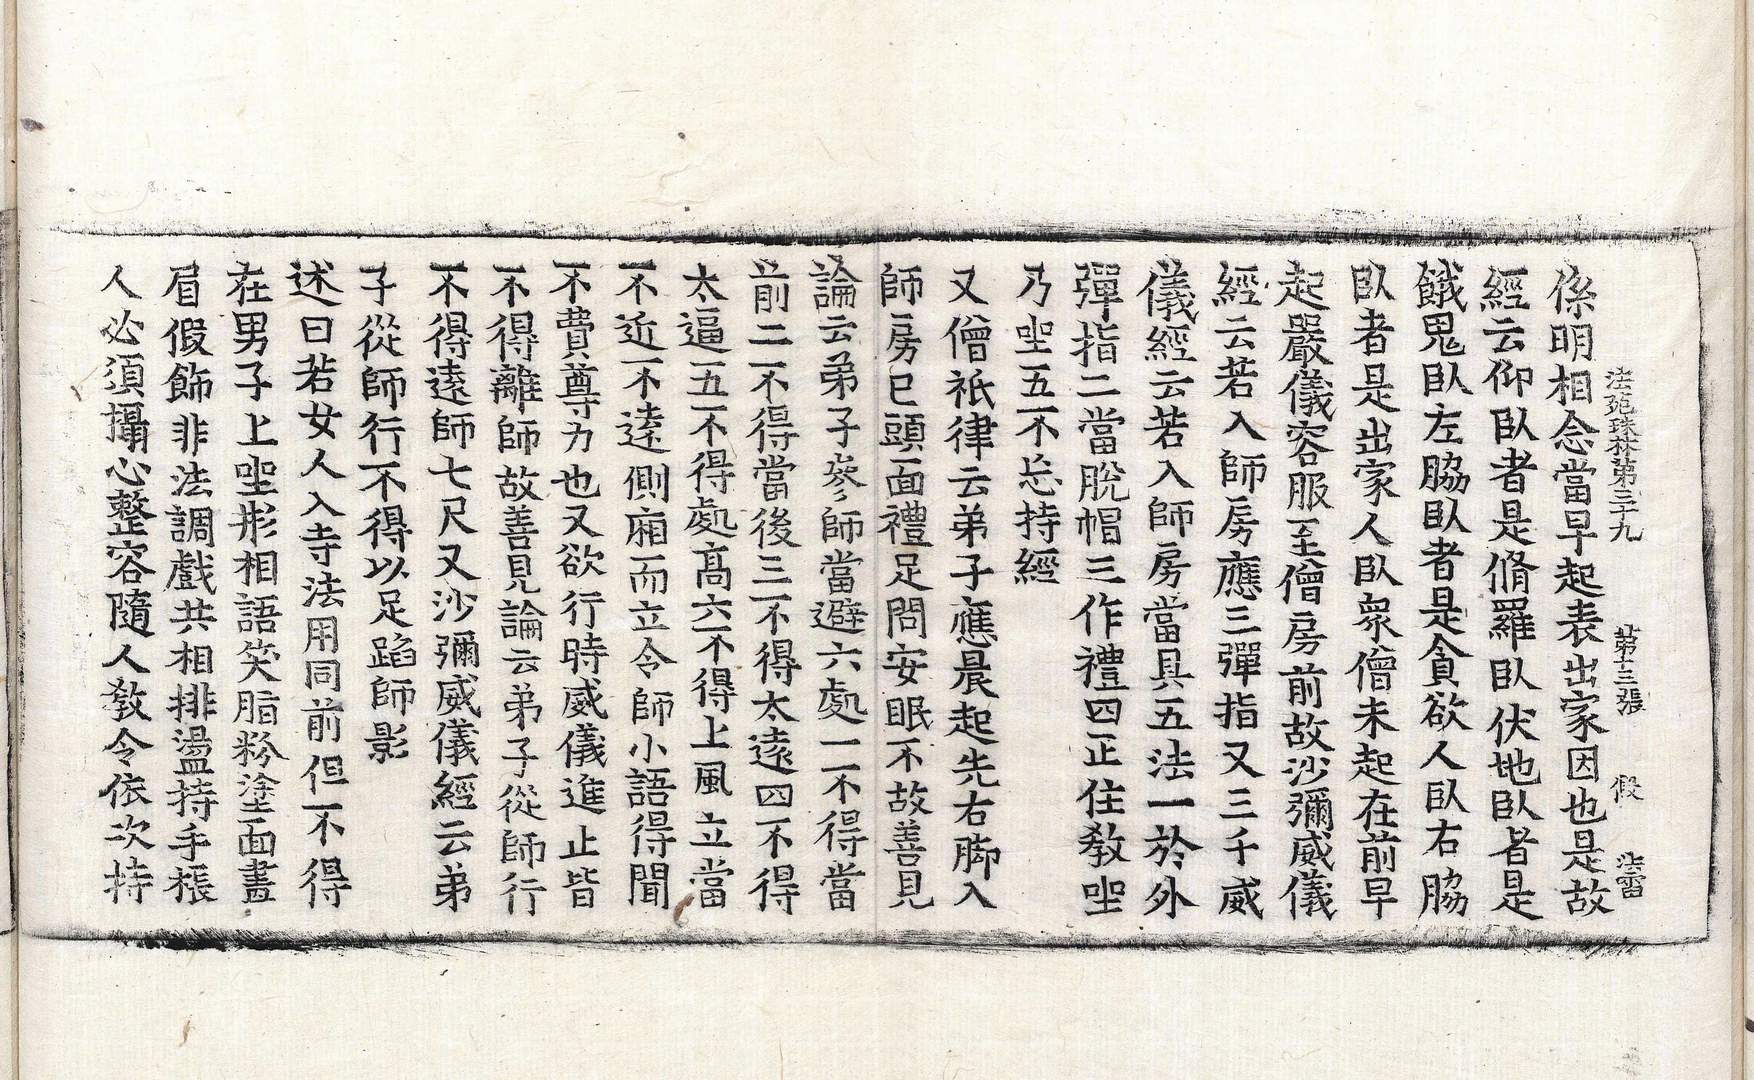 法苑珠林第三十九 第十三張 假 法雷
係明相念當早起表出家因也是故
經云仰臥者是脩羅臥伏地臥者是
餓鬼臥左脇臥者是貪欲人臥右脇
臥者是出家人臥衆僧未起在前早
起嚴儀容服至僧房前故沙彌威儀
經云若入師房應三彈指又三千威
儀經云若入師房當具五法一於外
彈指二當脫帽三作禮四正住教坐
乃坐五不忘持經
又僧祇律云弟子應晨起先右脚入
師房已頭面禮足問安眠不故善見
論云弟子參師當避六處一不得當
前二不得當後三不得太遠四不得
太逼五不得處高六不得上風立當
不近不遠側廂而立令師小語得聞
不費尊力也又欲行時威儀進止皆
不得離師故善見論云弟子從師行
不得遠師七尺又沙彌威儀經云弟
子從師行不得以足蹈師影
述曰若女人入寺法用同前但不得
在男子上坐形相語笑脂粉塗面畫
眉假飾非法調戲共相排盪持手振
人必須攝心整容隨人教令依次持